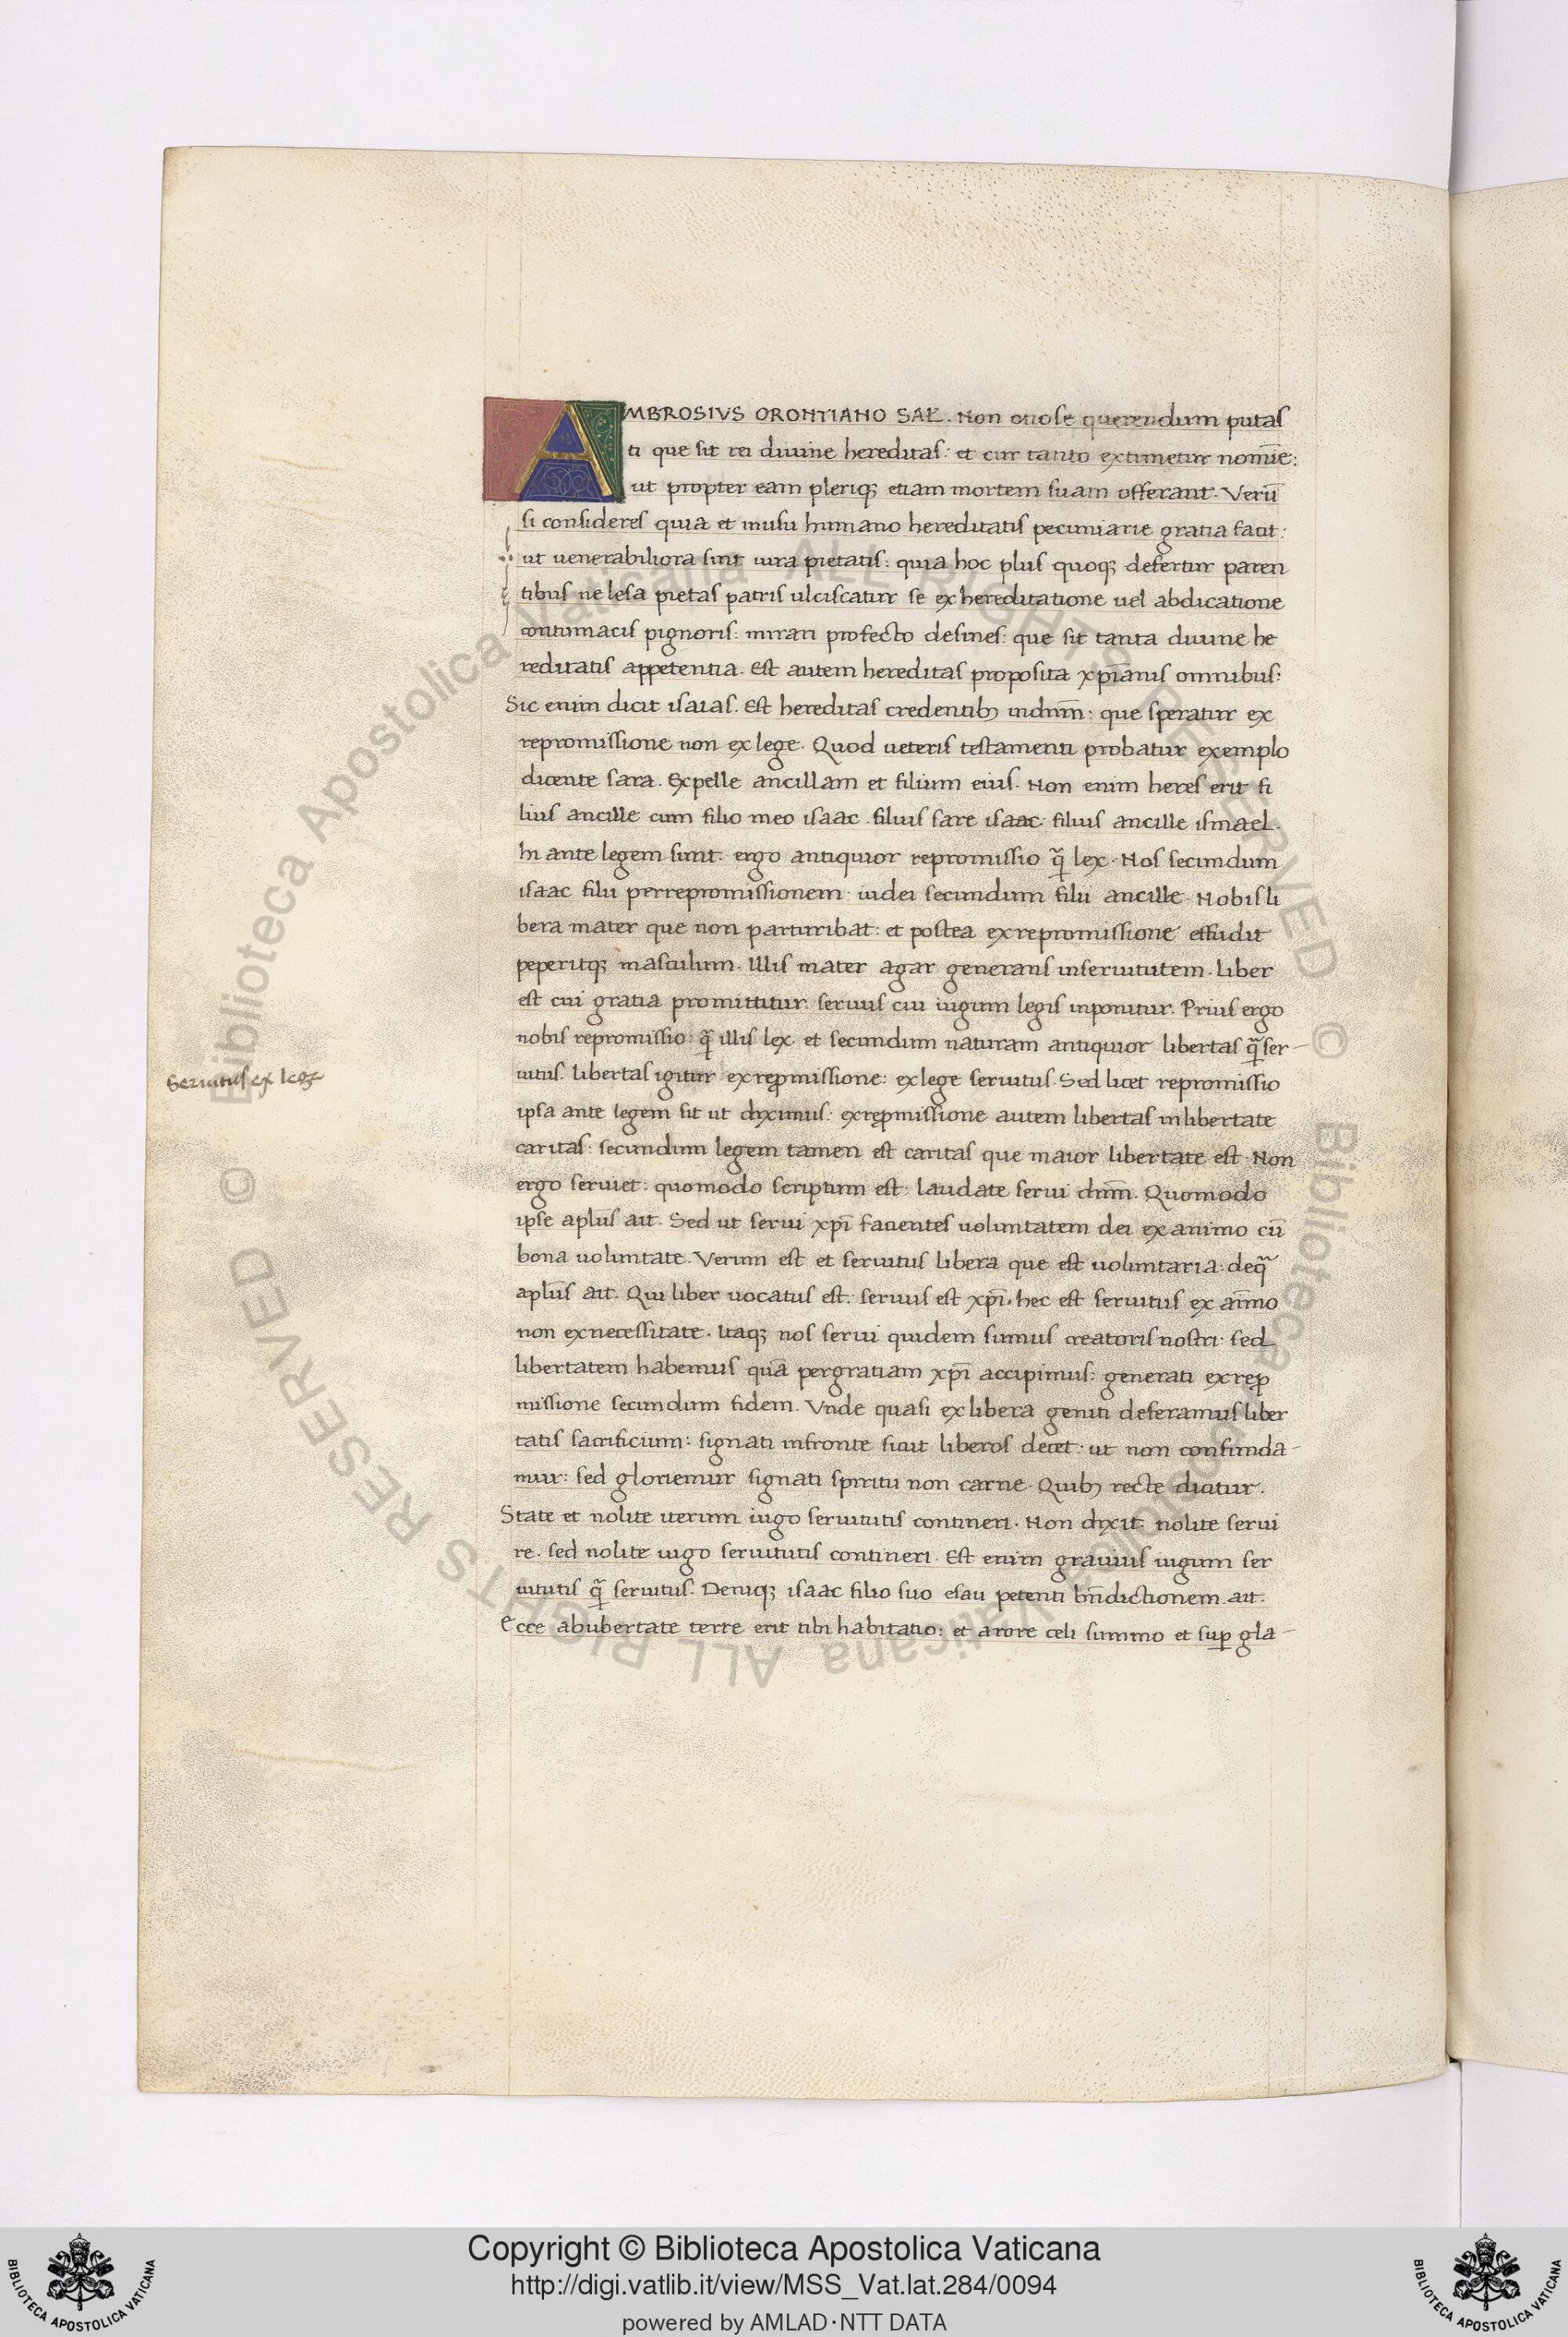 AMBROSIVS ORONTIANO SAL̅. Non ociose querendum putas
ti que sit rei diuine hereditas: et cur tanto extimetur nomīe:
ut propter eam pleriqꝫ etiam mortem suam offerant. Verū
si consideres quia et inusu humano hereditatis pecuniarie gratia facit:
ut uenerabiliora sint iura pietatis: quia hoc plus quoqꝫ defertur paren
tibus ne lesa pietas patris ulciscatur se exhereditatione uel abdicatione
contumacis pignoris: mirari profecto desines: que sit tanta diuine he
reditatis appetentia. Est autem hereditas proposita xp̄ianis omnibus:
Sic enim dicit isaias. Est hereditas credentibꝫ indn̄m: que speratur ex
repromissione non ex lege. Quod ueteris testamenti probatur exemplo
dicente sara. Expelle ancillam et filium eius. Non enim heres erit fi
lius ancille cum filio meo isaac. filius sare isaac: filius ancille ismael.
hi ante legem sunt. ergo antiquior repromissio q̄ lex. Nos secundum
isaac filii perrepromissionem: iudei secundum filii ancille. Nobis li
bera mater que non parturibat: et postea exrepromissione effudit
peperitqꝫ masculum. Illis mater agar generans inseruitutem. liber
est cui gratia promittitur. seruus cui iugum legis inponitur. Prius ergo
nobis repromissio: q̄ illis lex. et secundum naturam antiquior libertas q̄ ser-
uitus. libertas igitur exreꝓmissione: ex lege seruitus. Sed licet repromissio
ipsa ante legem sit ut diximus: exreꝓmissione autem libertas inlibertate
caritas: secundum legem tamen est caritas que maior libertate est. Non
ergo seruiet: quomodo scriptum est: laudate serui dn̄m. Quomodo
ipse aplus ait. Sed ut serui xp̄i facientes uoluntatem dei ex animo cū
bona uoluntate. Verum est et seruitus libera que est uoluntaria: deq̄
apl̄us ait. Qui liber uocatus est: seruus est xp̄i. hec est seruitus ex aīmo
non exnecessitate. Itaqꝫ nos serui quidem sumus creatoris nostri: sed
libertatem habemus quā pergratiam xp̄i accipimus: generati exreꝓ
missione secundum fidem. Vnde quasi ex libera geniti deferamus liber
tatis sacrificium: signati infronte sicut liberos decet: ut non confunda-
mur: sed gloriemur signati spiritu non carne. Quibꝫ recte dicitur.
State et nolite iterum iugo seruitutis contineri. Non dixit. nolite serui
re. sed nolite iugo seruitutis contineri. Est enim grauius iugum ser
uitutis q̄ seruitus. Deniqꝫ isaac filio suo esau petenti bn̄dictionem ait.
Ecce abubertate terre erit tibi habitatio: et arore celi summo et suꝑ gla-
Seruitus ex lege
© Biblioteca Apostolica Vaticana ALL RIGHTS RESERVED © Biblioteca Apostolica Vaticana ALL RIGHTS RESERVED
Copyright © Biblioteca Apostolica Vaticana
http://digi.vatlib.it/view/MSS_Vat.lat.284/0094
powered by AMLAD·NTT DATA
BIBLIOTECA APOSTOLICA VATICANA
BIBLIOTECA APOSTOLICA VATICANA